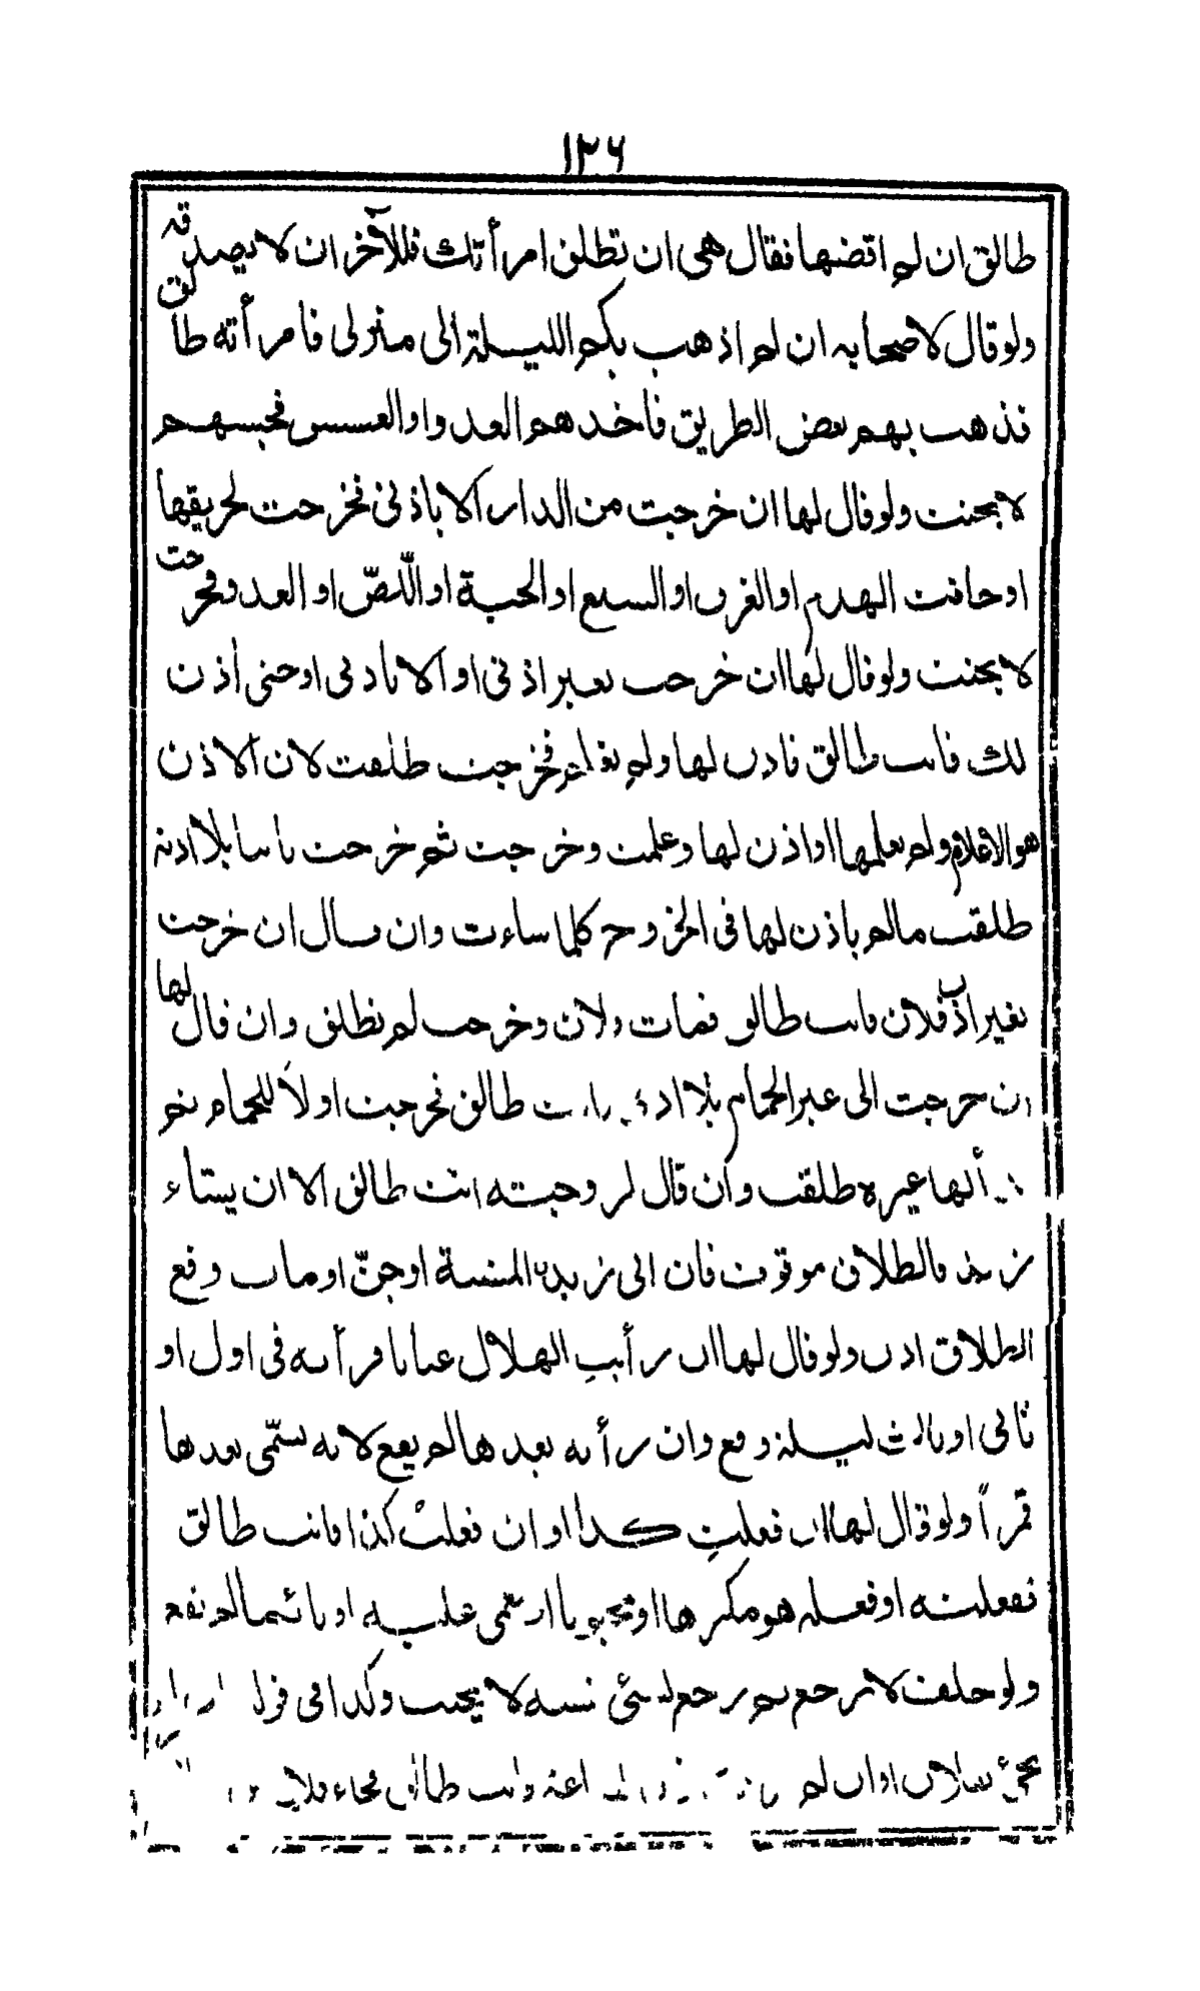 ١٢٦
طالق ان لم اقضها فقال هى ان تطلق امرأتك فللآخر ان لا يصدقه
ولو قال لاصحابه ان لم اذهب بكم الليلة الى منزلى فامرأته طالق
فذهب بهم بعض الطريق فاخذهم العدو او العسس فحبسهم
لا يحنث ولو قال لها ان خرجت من الدار الا باذنى فخرجت لحريقها
او خافت الهدم او الغرق او السبع او الحية او اللصّ او العدو فخرجت
لا يحنث ولو قال لها ان خرجت بغير اذنى او الا باذنى او حتى أذن
لك فانت طالق فاذن لها ولم فخرجت طلقت لان الاذن
هو الاعلام ولم يعلمها او اذن لها وعلمت وخرجت ثم خرجت ثانيا بلا اذنه
طلقت مالم ياذن لها فى الخروج كلما شاءت وان قال ان خرجت
بغير اذن فلان فانت طالق فمات فلان وخرجت لم تطلق وان قال لها
ان خرجت الى غير الحمام بلا طالق فخرجت اولاً للحمام ثم
لها غيره طلقت وان قال لزوجته انت طالق الا ان يشاء
زيد فالطلاق موقوف فان ابى زيد المشية او جنّ او مات وقع
الطلاق اذن ولو قال لها ان رأيتِ الهلال عيانا فرأته فى اول او
ثانى او ثالث ليلة وقع وان رأته بعدها لم يقع لانه يسمّى بعدها
قمراً ولو قال لها ان فعلتِ كذا او ان فعلتُ كذا فانت طالق
ففعلته او فعله هو مكرها او مجنونا او مغمى عليه او نائما لم يقع
ولو حلف لا رجع ثم رجع لشئ نسيه لا يحنث وكذا فى قوله
يجئ بفلان او ان لم الساعة فانت طالق فجاء فلان